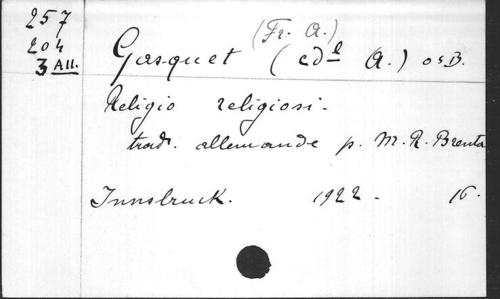 257
204
3 All.
(Fr. A.)
Gasquet (cdl A.) OSB.
Religio religiosi.
trad. allemande p. M. R. Brenta
Innsbruck. 1922 - 16.